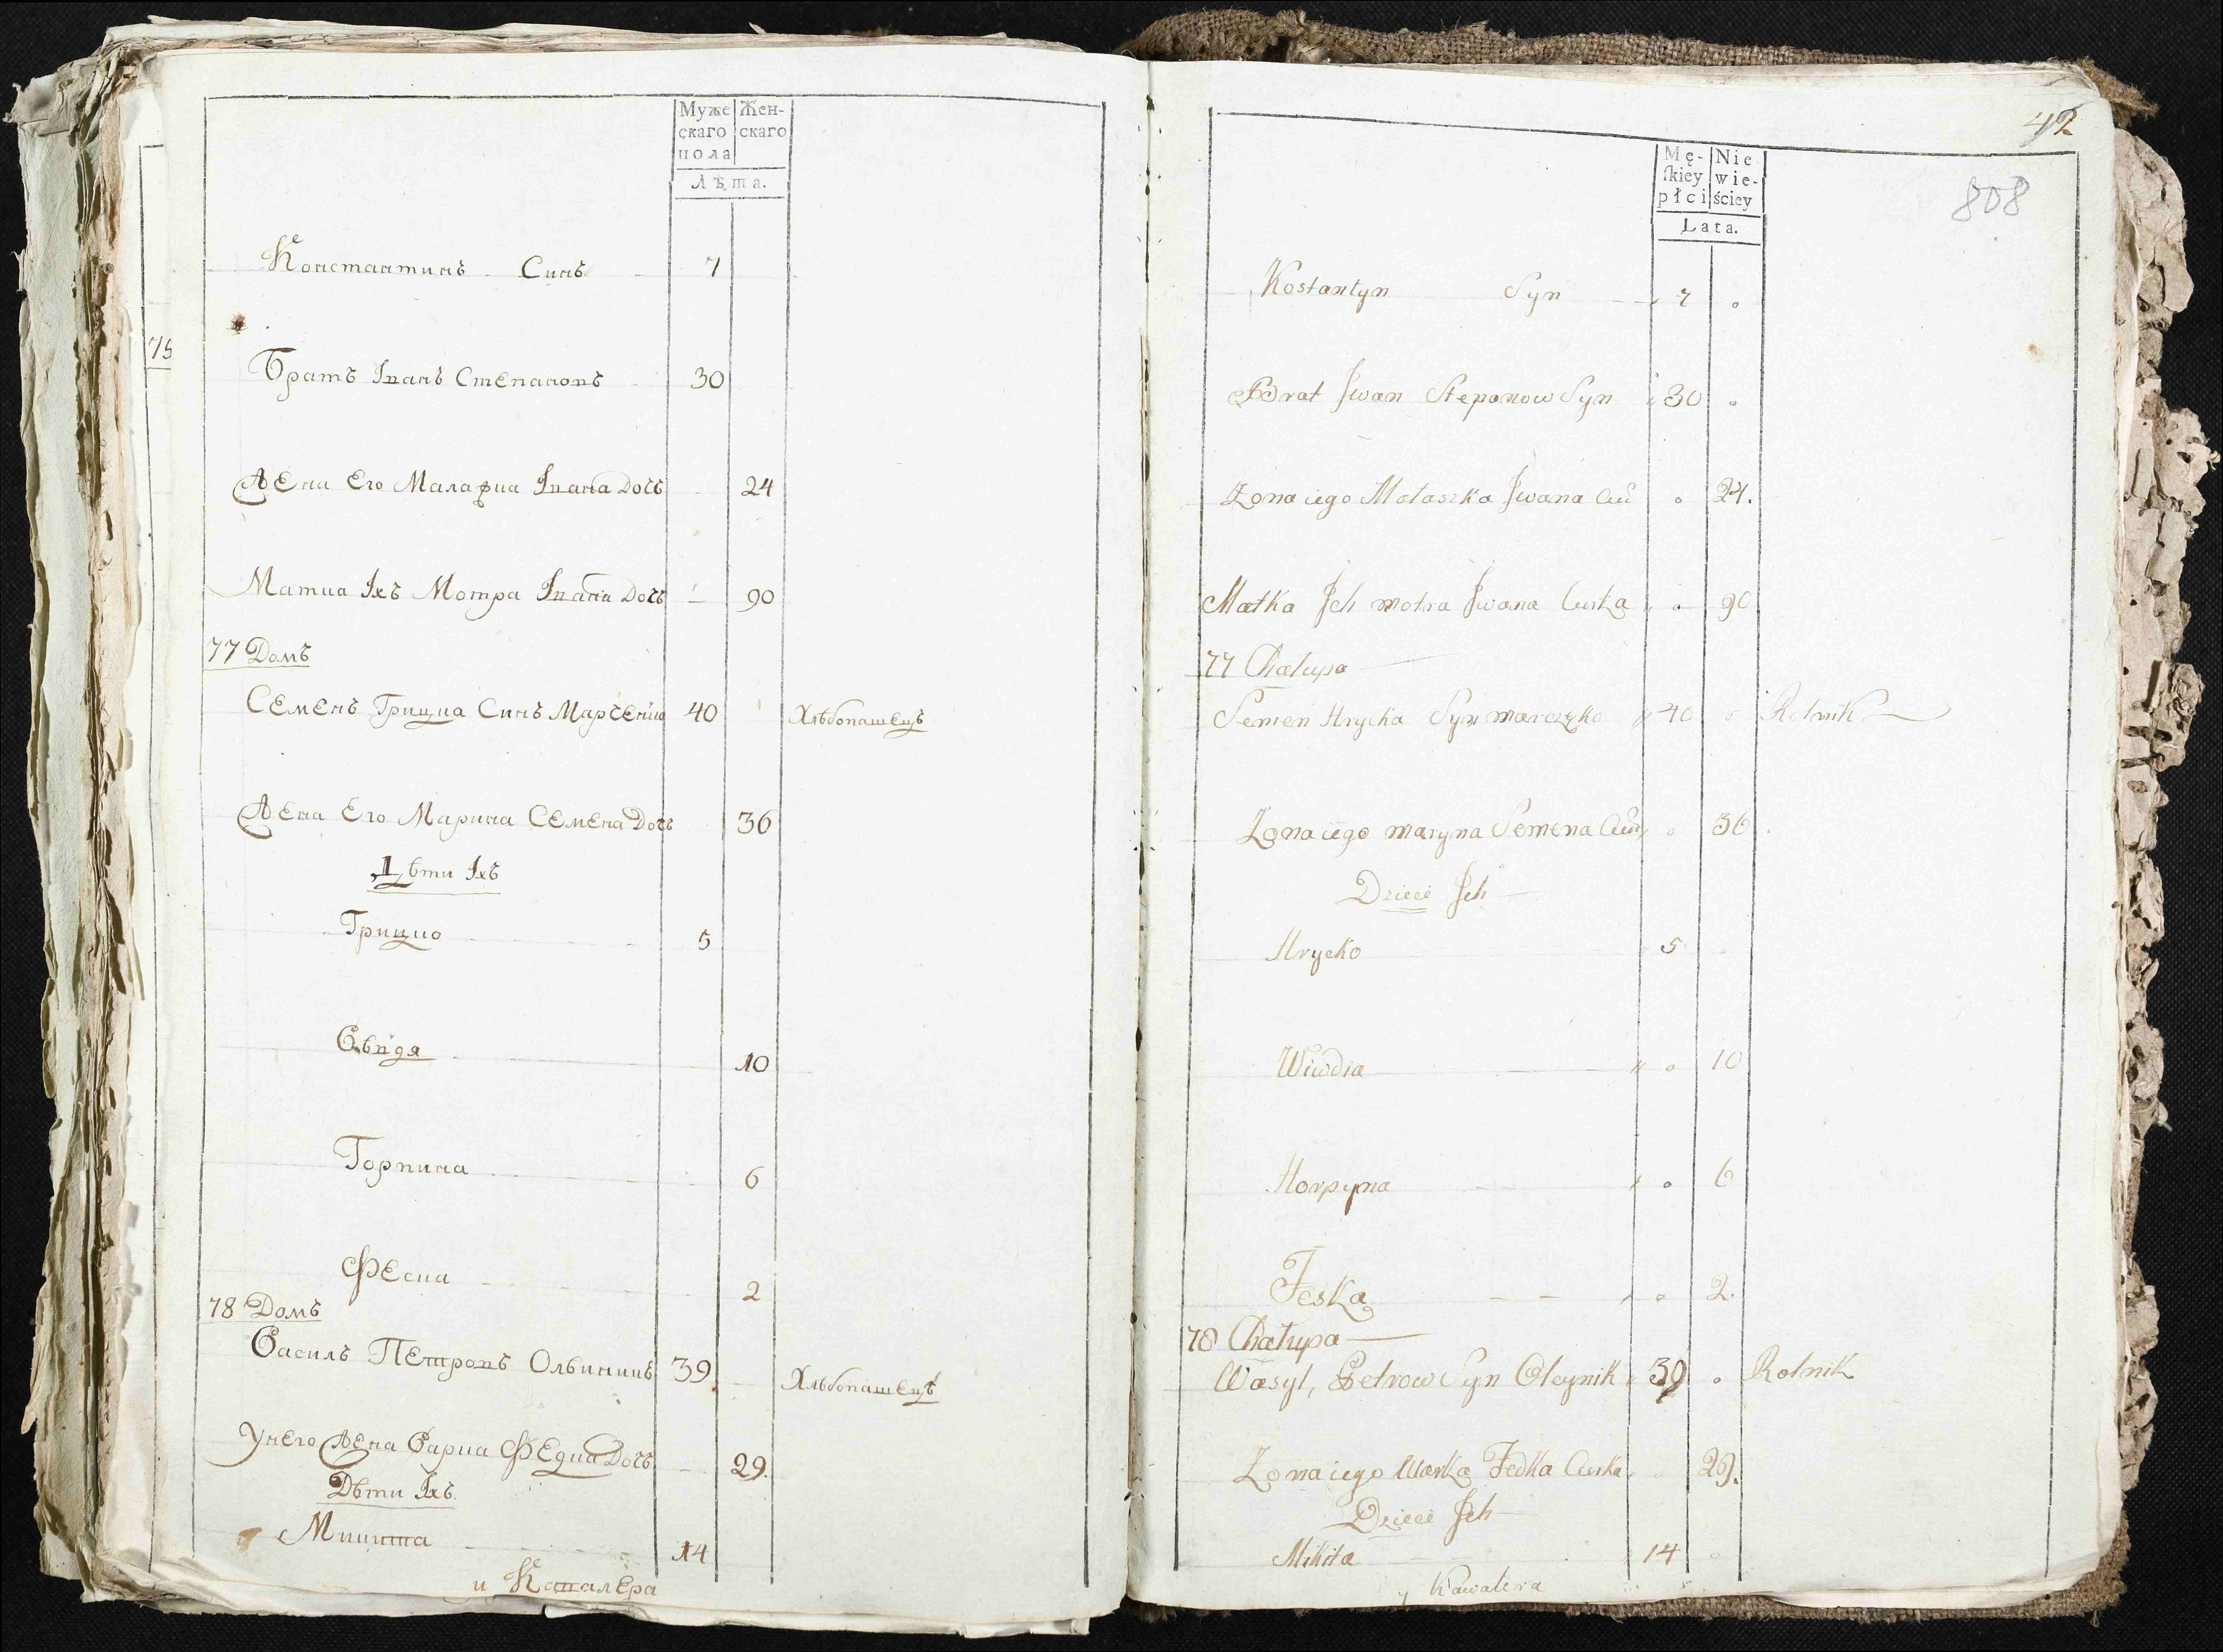 Муже Жен-
скаго скаго
пола
Лѣта.
Константинъ Синъ 7
75
Братъ Іванъ Степановъ 30
Жена Его Малашка Івана Дочъ 24
Матка Іхъ Мотра Івана Дочъ 90
77 Домъ
Семенъ Грицка Синъ Марченко 40 Хлѣбопашецъ
Жена Его Марина Семена Дочъ 36
Дѣти Іхъ
Грицко 5
Горпина 6
Феска 2
78 Домъ
Василъ Петровъ Олѣйникъ 39 Хлѣбопашецъ
Унего Жена Варка Федка Дочъ 29.
Дѣти Іхъ.
Микита 14
и Кавалера
42
808
Mę- Nie
skiey wie-
płci ściey
Lata.
Kostantyn Syn 7
Brat Jwan Stepanow Syn 30
Zona iego Małaszka Jwana Cur 24.
Matka Jch Motra Jwana Curka 90
77 Chałupa
Semen Hrycka Syn Marczyko 40 Rolnik
Zona iego Maryna Semena Cur 36
Dzieci Jch
Hrycko 5
Wiwdia 10
Horpyna 6
Feska 2.
78 Chałupa
Wasyl, Petrow Syn Oleynik 39 Rolnik
Zona iego Warka Fedka Curka 29.
Dzieci Jch
Mikita 14
y Kawalera